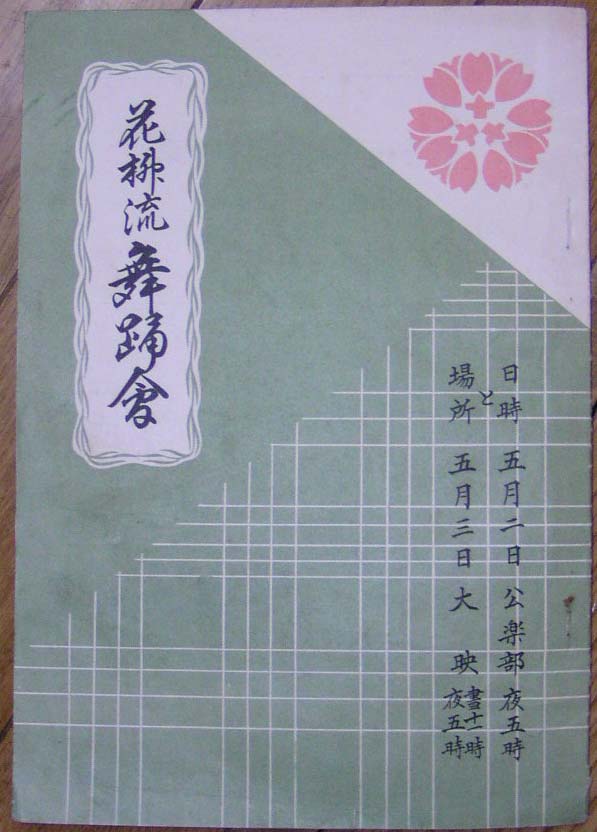 花柳流舞踊會
日時 五月二日 公楽部 夜五時
と
場所 五月三日 大映 晝十一時
夜五時